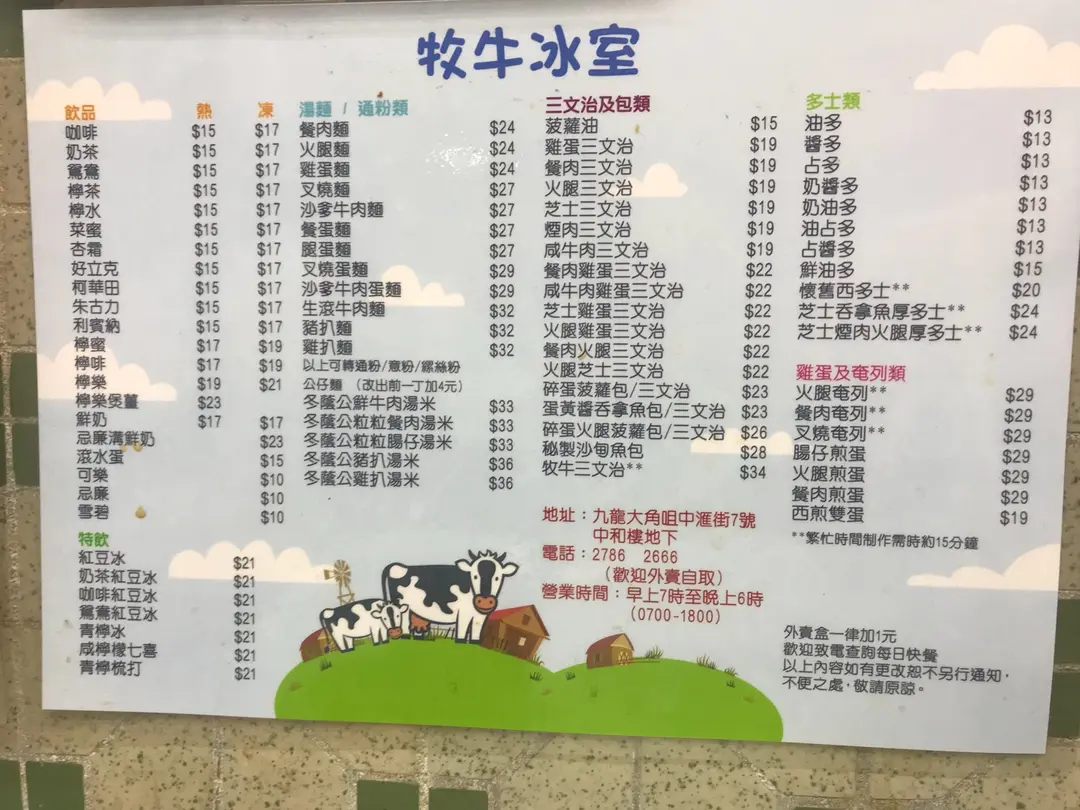 牧牛冰室
飲品 熱 凍
咖啡 $15 $17
奶茶 $15 $17
鴛鴦 $15 $17
檸茶 $15 $17
檸水 $15 $17
菜蜜 $15 $17
杏霜 $15 $17
好立克 $15 $17
柯華田 $15 $17
朱古力 $15 $17
利賓納 $15 $17
檸蜜 $17 $19
檸啡 $17 $19
檸樂 $19 $21
檸樂煲薑 $23
鮮奶 $17 $17
忌廉溝鮮奶 $23
滾水蛋 $15
可樂 $10
忌廉 $10
雪碧 $10
特飲
紅豆冰 $21
奶茶紅豆冰 $21
咖啡紅豆冰 $21
鴛鴦紅豆冰 $21
青檸冰 $21
咸檸檬七喜 $21
青檸梳打 $21
湯麵 / 通粉類
餐肉麵 $24
火腿麵 $24
雞蛋麵 $24
叉燒麵 $27
沙爹牛肉麵 $27
餐蛋麵 $27
腿蛋麵 $27
叉燒蛋麵 $29
沙爹牛肉蛋麵 $29
生滾牛肉麵 $32
豬扒麵 $32
雞扒麵 $32
以上可轉通粉/意粉/螺絲粉
公仔麵 (改出前一丁加4元)
冬蔭公鮮牛肉湯米 $33
冬蔭公粒粒餐肉湯米 $33
冬蔭公粒粒腸仔湯米 $33
冬蔭公豬扒湯米 $36
冬蔭公雞扒湯米 $36
三文治及包類
菠蘿油 $15
雞蛋三文治 $19
餐肉三文治 $19
火腿三文治 $19
芝士三文治 $19
煙肉三文治 $19
咸牛肉三文治 $19
餐肉雞蛋三文治 $22
咸牛肉雞蛋三文治 $22
芝士雞蛋三文治 $22
火腿雞蛋三文治 $22
餐肉火腿三文治 $22
火腿芝士三文治 $22
碎蛋菠蘿包/三文治 $23
蛋黃醬吞拿魚包/三文治 $23
碎蛋火腿菠蘿包/三文治 $26
秘製沙甸魚包 $28
牧牛三文治** $34
地址：九龍大角咀中滙街7號
中和樓地下
電話：2786 2666
(歡迎外賣自取)
營業時間：早上7時至晚上6時
(0700-1800)
多士類
油多 $13
醬多 $13
占多 $13
奶醬多 $13
奶油多 $13
油占多 $13
占醬多 $13
鮮油多 $15
懷舊西多士** $20
芝士吞拿魚厚多士** $24
芝士煙肉火腿厚多士** $24
雞蛋及奄列類
火腿奄列** $29
餐肉奄列** $29
叉燒奄列** $29
腸仔煎蛋 $29
火腿煎蛋 $29
餐肉煎蛋 $29
西煎雙蛋 $19
**繁忙時間制作需時約15分鐘
外賣盒一律加1元
歡迎致電查詢每日快餐
以上內容如有更改恕不另行通知，
不便之處，敬請原諒。